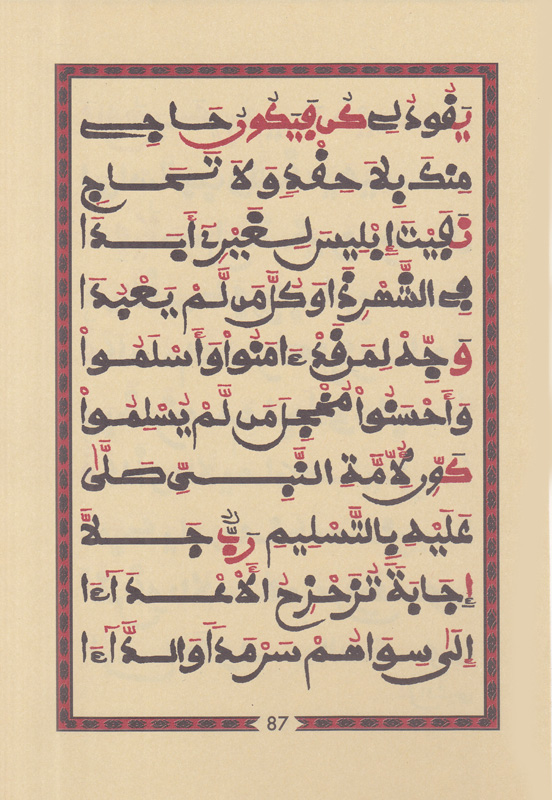 يَقُودُ لِي كُن فَيَكُونُ حَاجِي
مِنكَ بِلَا حِقْدٍ وَلَا
نَفَيْتَ إِبْلِيسَ لِغَيْرِي أَبَدَا
فِي الشَّهْرِ ذَا وَكُلَّ مَن لَّمْ يَعْبُدَا
وَجِّهْ لِمَن قَدْ ءَامَنُواْ وَأَسْلَمُواْ
وَأَحْسَنُواْ مُخْجِلَ مَن لَّمْ يُسْلِمُواْ
كَوِّن لِّأُمَّةِ النَّبِيِّ صَلَّى
عَلَيْهِ بِالتَّسْلِيمِ رَبٌّ جَلَّا
إِجَابَةً تُزَحْزِحُ الْأَعْدَآءَا
إِلَى سِوَاهُمْ سَرْمَدًا وَالدَّآءَا
87